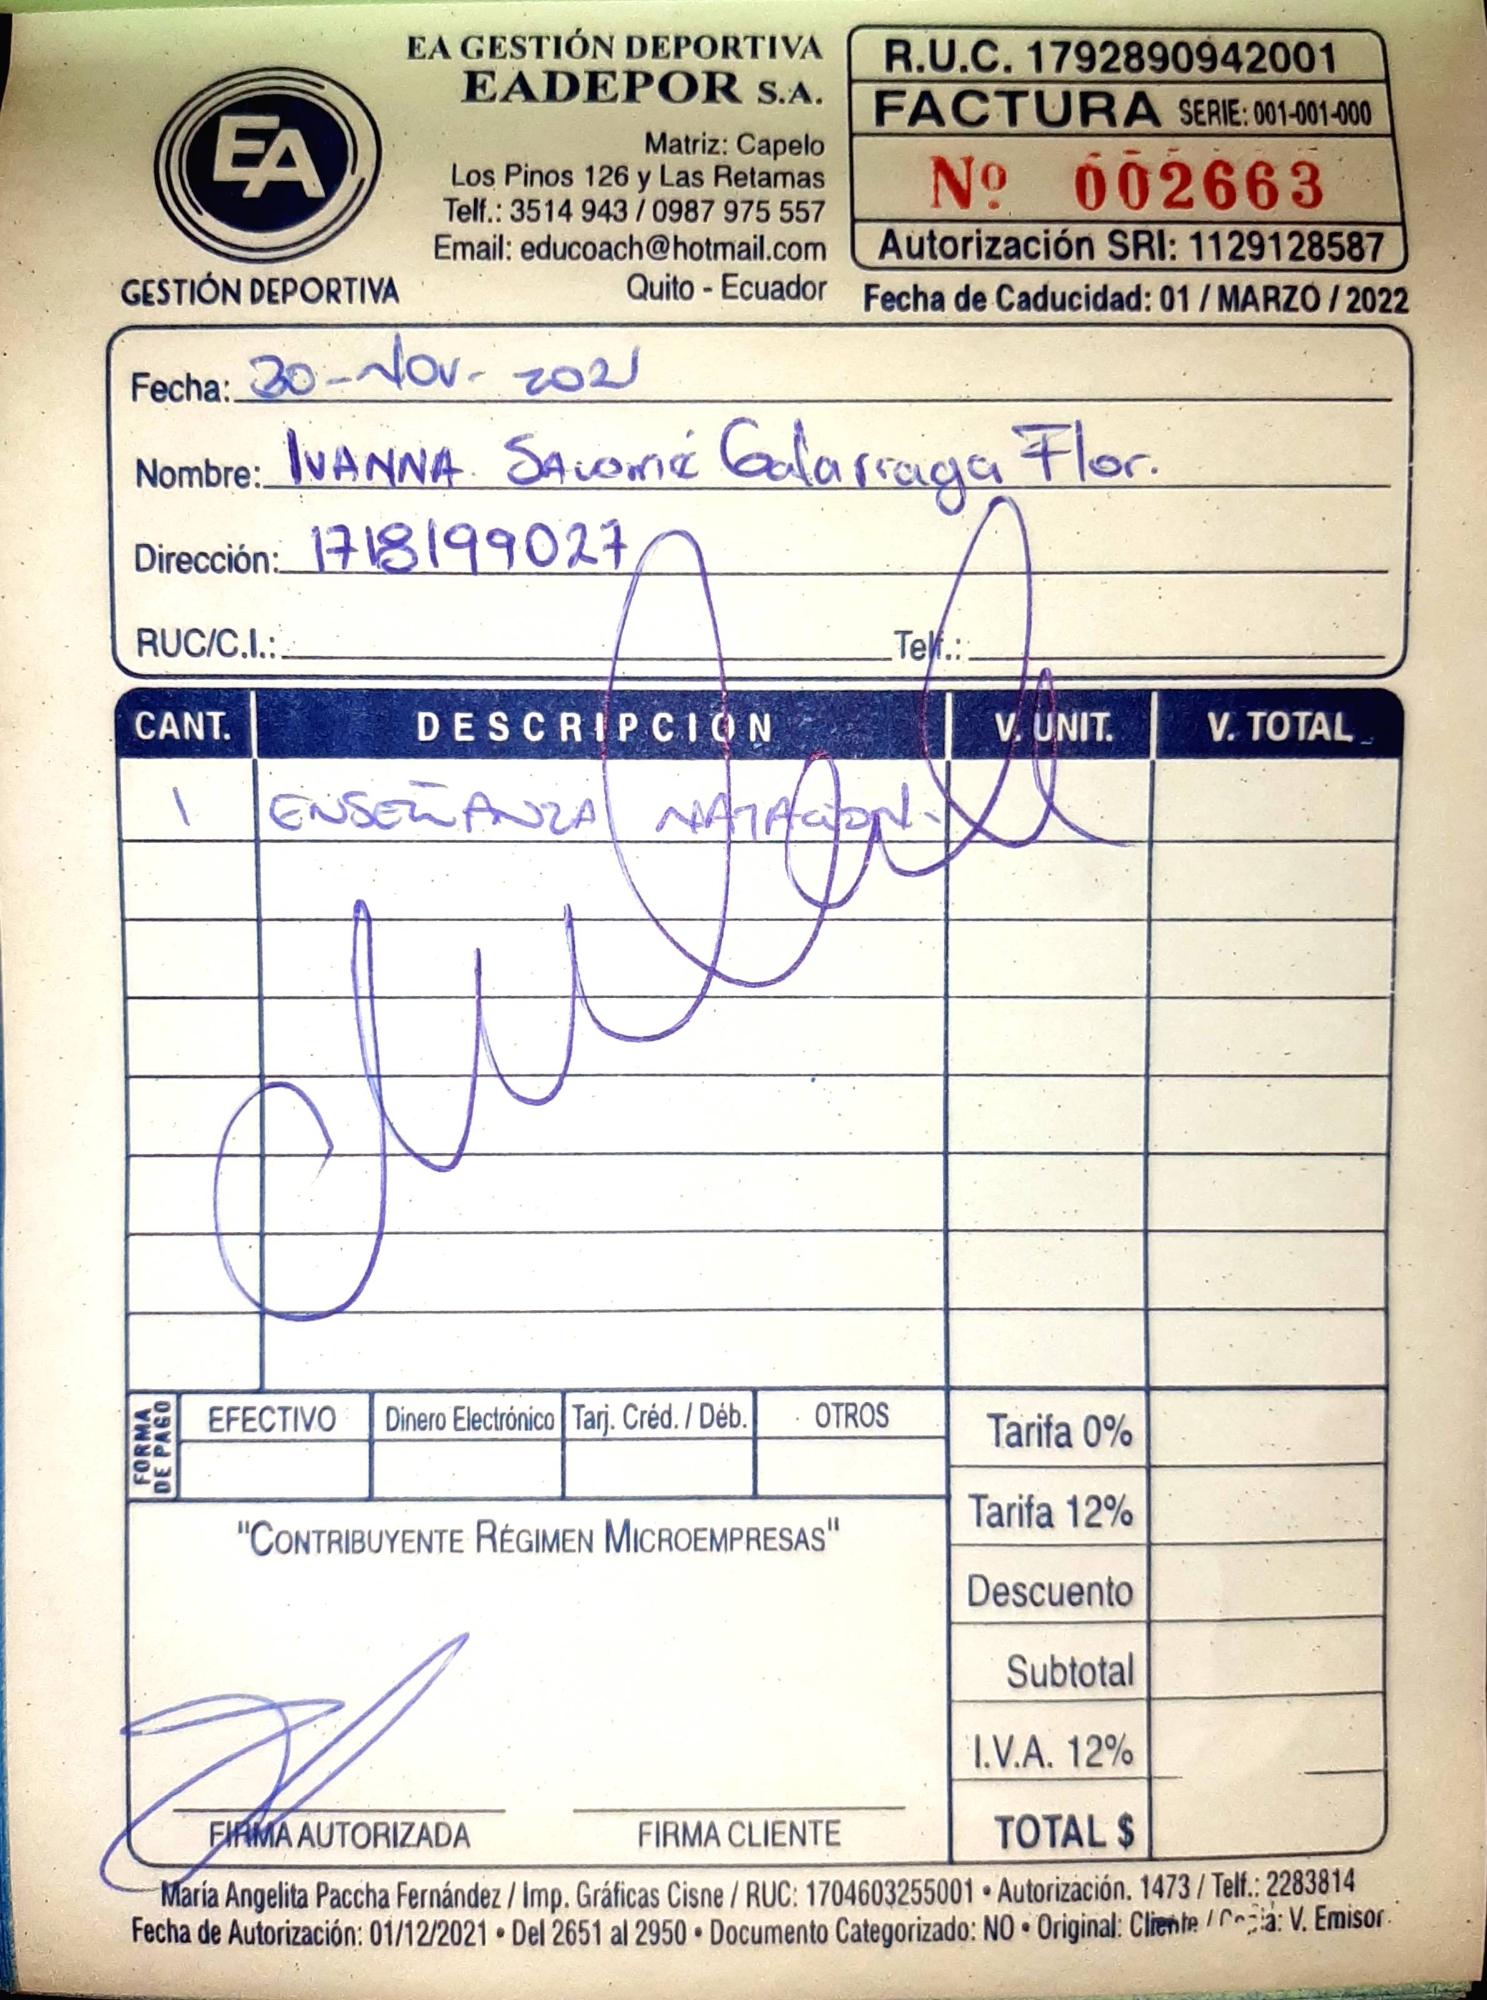 EA GESTIÓN DEPORTIVA
EADEPOR S.A.
Matriz: Capelo
Los Pinos 126 y Las Retamas
Telf.: 3514 943 / 0987 975 557
Email: educoach@hotmail.com
Quito - Ecuador
EA
GESTIÓN DEPORTIVA
R.U.C. 1792890942001
FACTURA SERIE: 001-001-000
Nº 002663
Autorización SRI: 1129128587
Fecha de Caducidad: 01 / MARZO / 2022
Fecha: 30-Nov- 2021
Nombre: IVANNA Salomé Galarraga Flor.
Dirección: 1718199027
RUC/C.I.: Telf.:
CANT. DESCRIPCION V. UNIT. V. TOTAL
1 ENSEÑANZA NATACION.
FORMA DE PAGO
EFECTIVO Dinero Electrónico Tarj. Créd. / Déb. OTROS
Tarifa 0%
Tarifa 12%
Descuento
Subtotal
I.V.A. 12%
TOTAL $
"CONTRIBUYENTE RÉGIMEN MICROEMPRESAS"
FIRMA AUTORIZADA FIRMA CLIENTE
María Angelita Paccha Fernández / Imp. Gráficas Cisne / RUC: 1704603255001 • Autorización. 1473 / Telf.: 2283814
Fecha de Autorización: 01/12/2021 • Del 2651 al 2950 • Documento Categorizado: NO • Original: Cliente / Copia: V. Emisor